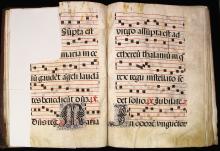 ssupta est
maria in ce
lū gaudēt āgeli lauda
tes benedicūt dn̄m
aria
virgo assūpta est ad
ethereū thalamū in q̄
rex regū stellato se
det solio. Jubilate.
In odorē unguētor